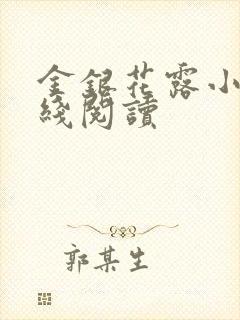 金銀花露小
綫閱讀
郭某生